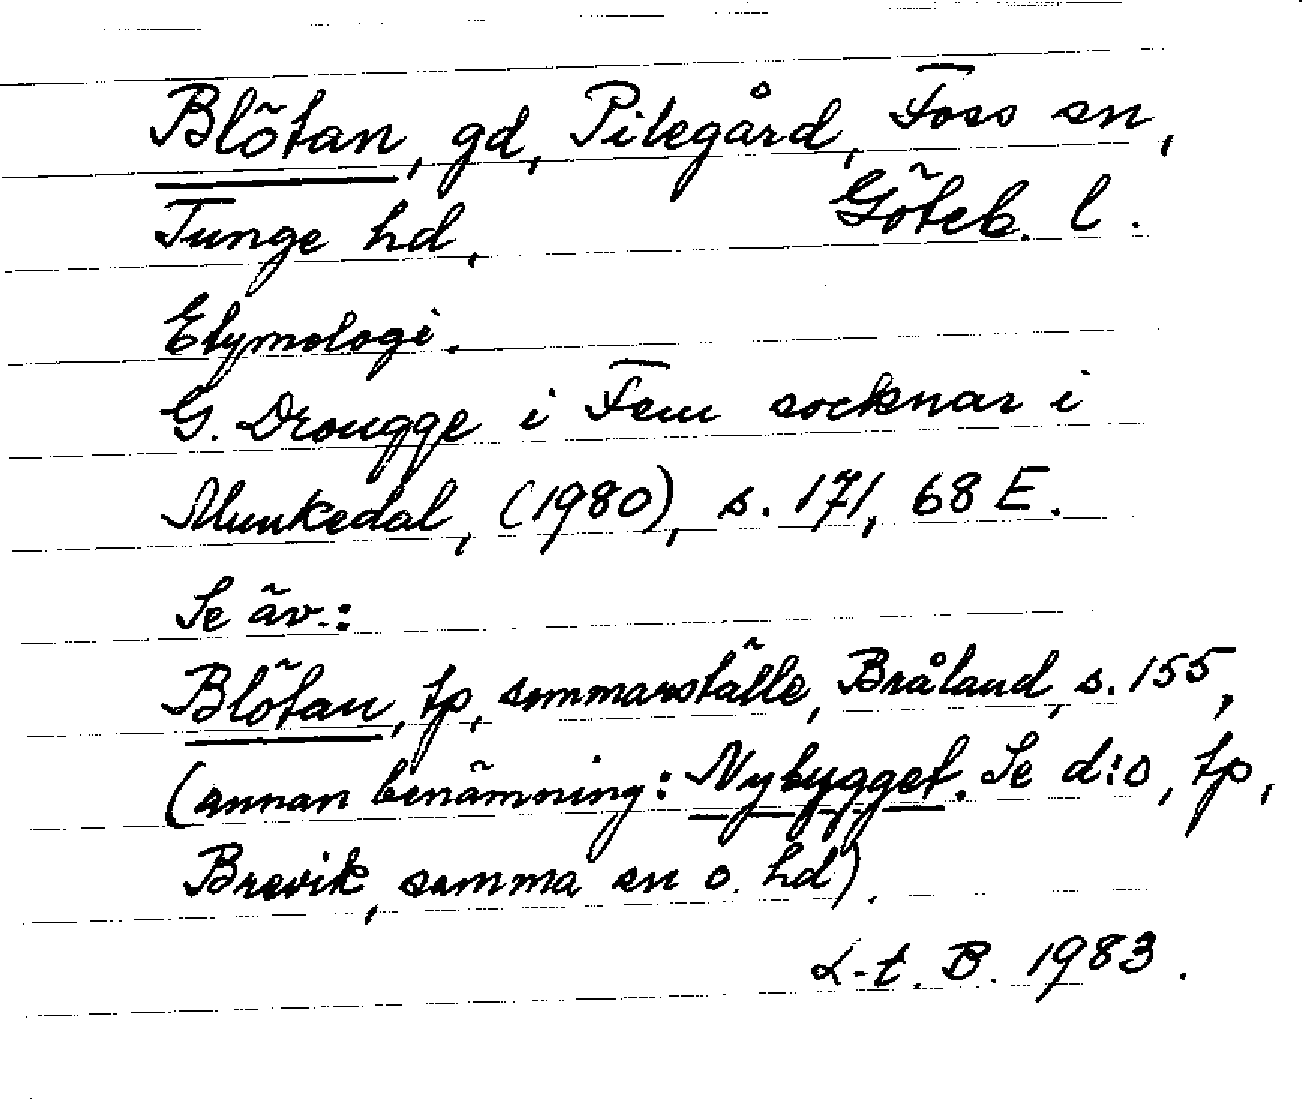 Blötan, gd, Pilegård, Foss sn,
Tunge hd, Göteb. l.
Etymologi.
G. Drougge i Fem socknar i
Munkedal, (1980), s. 171, 68 E.
Se äv.:
Blötan, tp, sommarställe, Bråland, s. 155,
(annan benämning: Nybygget. Se d:o, tp,
Brevik, samma sn o. hd).
L-t. B. 1983.